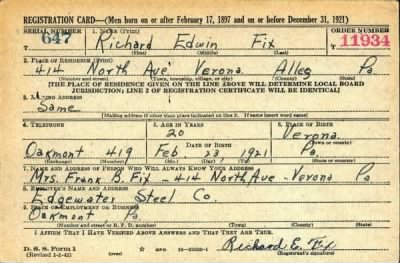 REGISTRATION CARD—(Men born on or after February 17, 1897 and on or before December 31, 1921)
SERIAL NUMBER 1. NAME (Print) ORDER NUMBER
647 Richard Edwin Fix 11934
(First) (Middle) (Last)
2. PLACE OF RESIDENCE (Print)
414 North Ave Verona Alleg Pa.
(Number and street) (Town, township, village, or city) (County) (State)
[THE PLACE OF RESIDENCE GIVEN ON THE LINE ABOVE WILL DETERMINE LOCAL BOARD
JURISDICTION; LINE 2 OF REGISTRATION CERTIFICATE WILL BE IDENTICAL]
3. MAILING ADDRESS
Same
[Mailing address if other than place indicated on line 2. If same insert word same]
4. TELEPHONE 5. AGE IN YEARS 6. PLACE OF BIRTH
20 Verona
DATE OF BIRTH (Town or county)
Oakmont 419 Feb. 23 1921 Pa
(Exchange) (Number) (Mo.) (Day) (Yr.) (State or country)
7. NAME AND ADDRESS OF PERSON WHO WILL ALWAYS KNOW YOUR ADDRESS
Mrs. Frank B. Fix - 414 North Ave - Verona Pa
8. EMPLOYER'S NAME AND ADDRESS
Edgewater Steel Co.
9. PLACE OF EMPLOYMENT OR BUSINESS
Oakmont Pa
(Number and street or R. F. D. number) (Town) (County) (State)
I AFFIRM THAT I HAVE VERIFIED ABOVE ANSWERS AND THAT THEY ARE TRUE.
D. S. S. Form 1 GPO Richard E. Fix
(Revised 1-1-42) (over) (Registrant's signature)